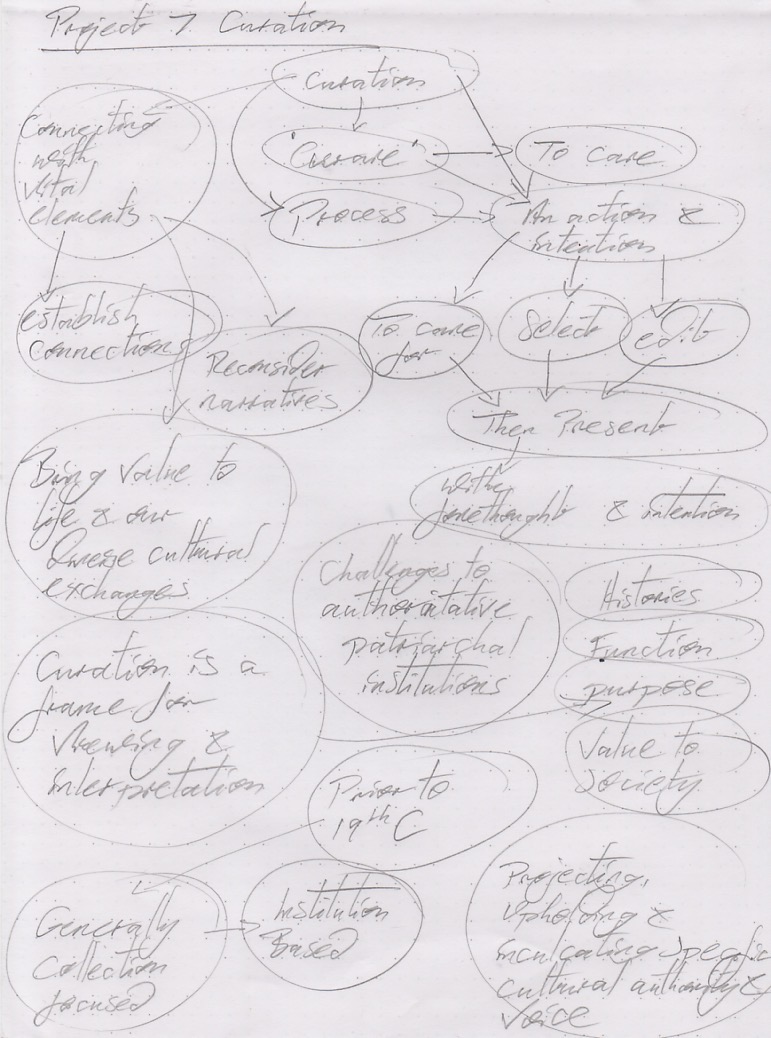 Project 7 Curation
Curation
Connecting
with
vital
elements
'Curare'
To care
Process
An action &
intention
establish
connections
Reconsider
narratives
To care
for
Select
edit
Then Present
with
forethought & intention
Bring value to
life & our
diverse cultural
exchanges
Challenges to
authoritative
patriarchal
institutions
Histories
Function
purpose
Value to
society
Curation is a
frame for
viewing &
interpretation
Prior to
19th C
Generally
Collection
focused
Institution
Based
Projecting,
upholding &
inculcating specific
cultural authority &
voice